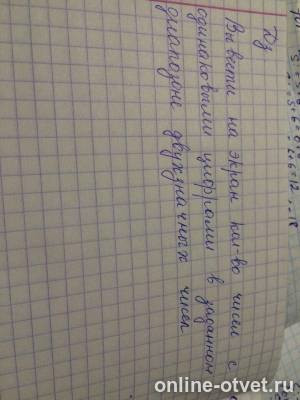 Дз
Вывести на экран кол-во чисел с
одинаковыми цифрами в заданном
диапазоне двухзначных чисел
online-otvet.ru